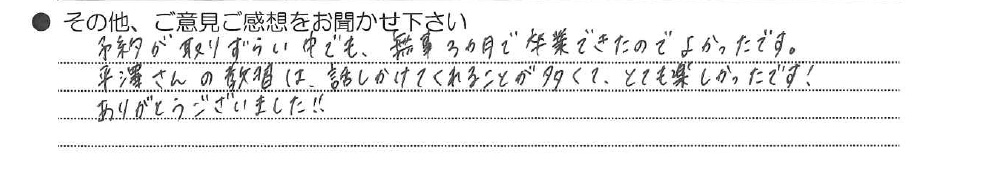 ● その他、ご意見ご感想をお聞かせ下さい
予約が取りずらい中でも、無事3カ月で卒業できたのでよかったです。
平澤さんの教習は、話しかけてくれることが多くて、とても楽しかったです!
ありがとうございました!!